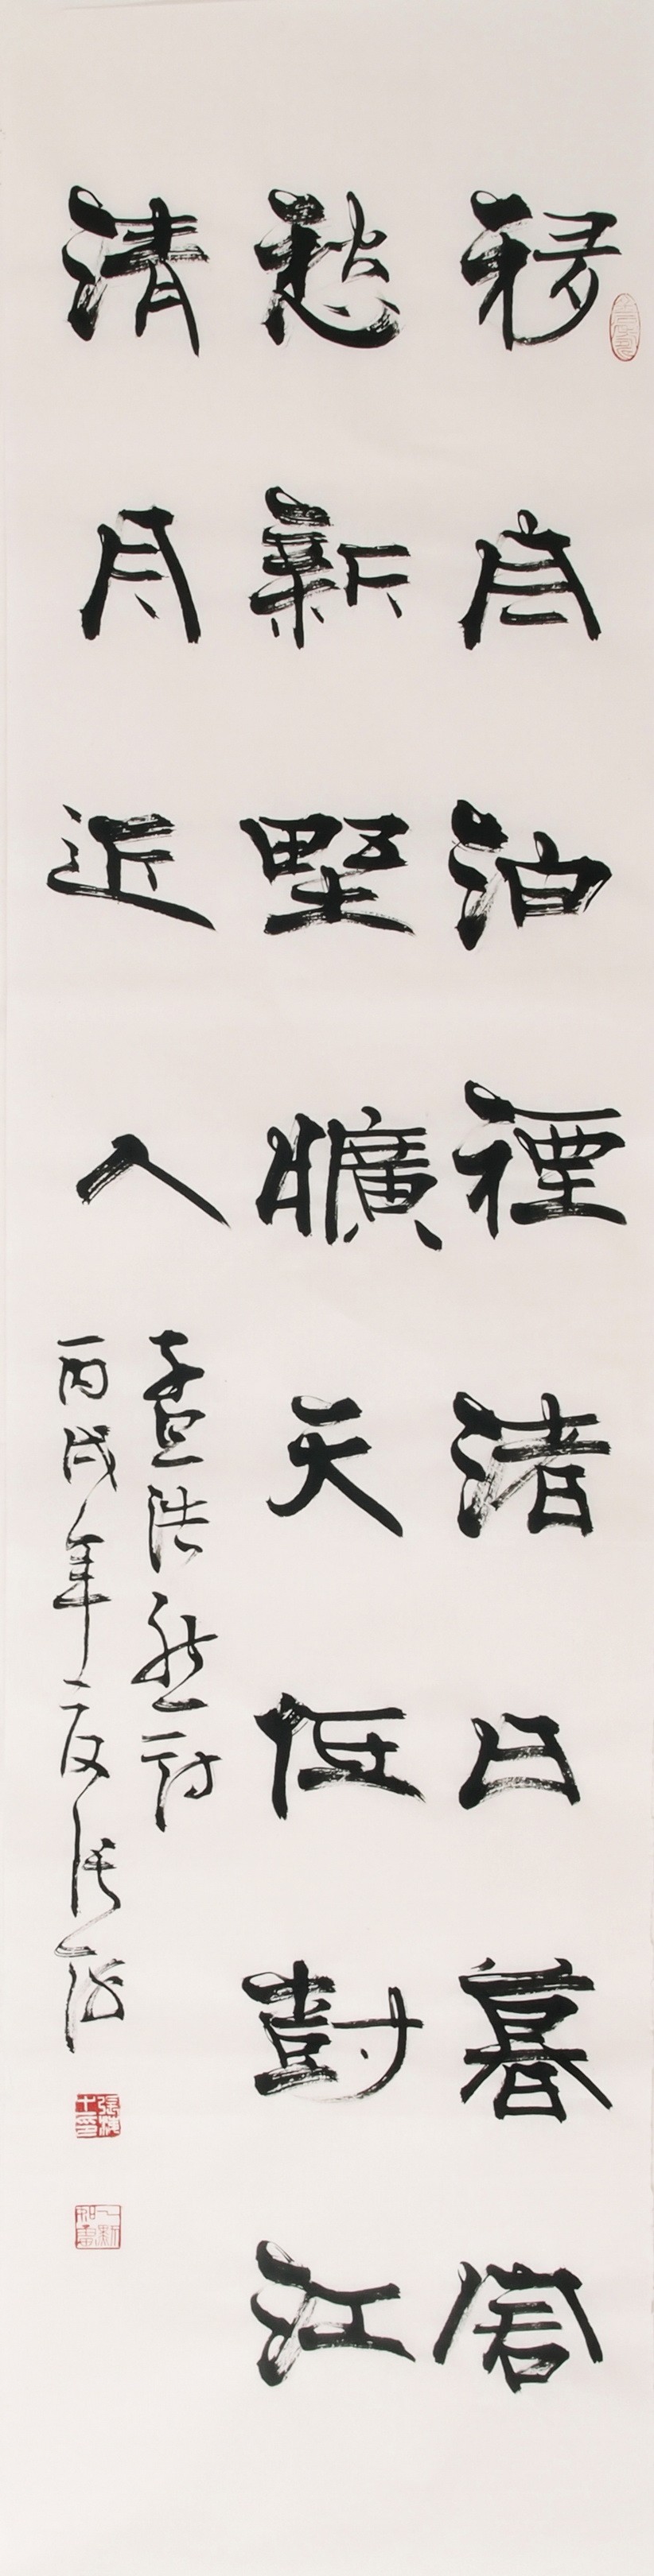 移舟泊煙渚日暮客
愁新野曠天低樹江
清月近人
孟浩然詩
丙戌年夏張